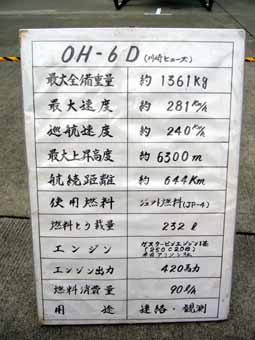 OH-6D (川崎ヒューズ)
最大全備重量 約 1361kg
最大速度 約 281㎞/h
巡航速度 約 240㎞/h
最大上昇高度 約 6300m
航続距離 約 644Km
使用燃料 ジェット燃料(JP-4)
燃料とう載量 232ℓ
エンジン ガスタービンエンジン1基
(250C20B)
エンジン出力 420馬力
燃料消費量 90ℓ/h
用途 連絡・観測